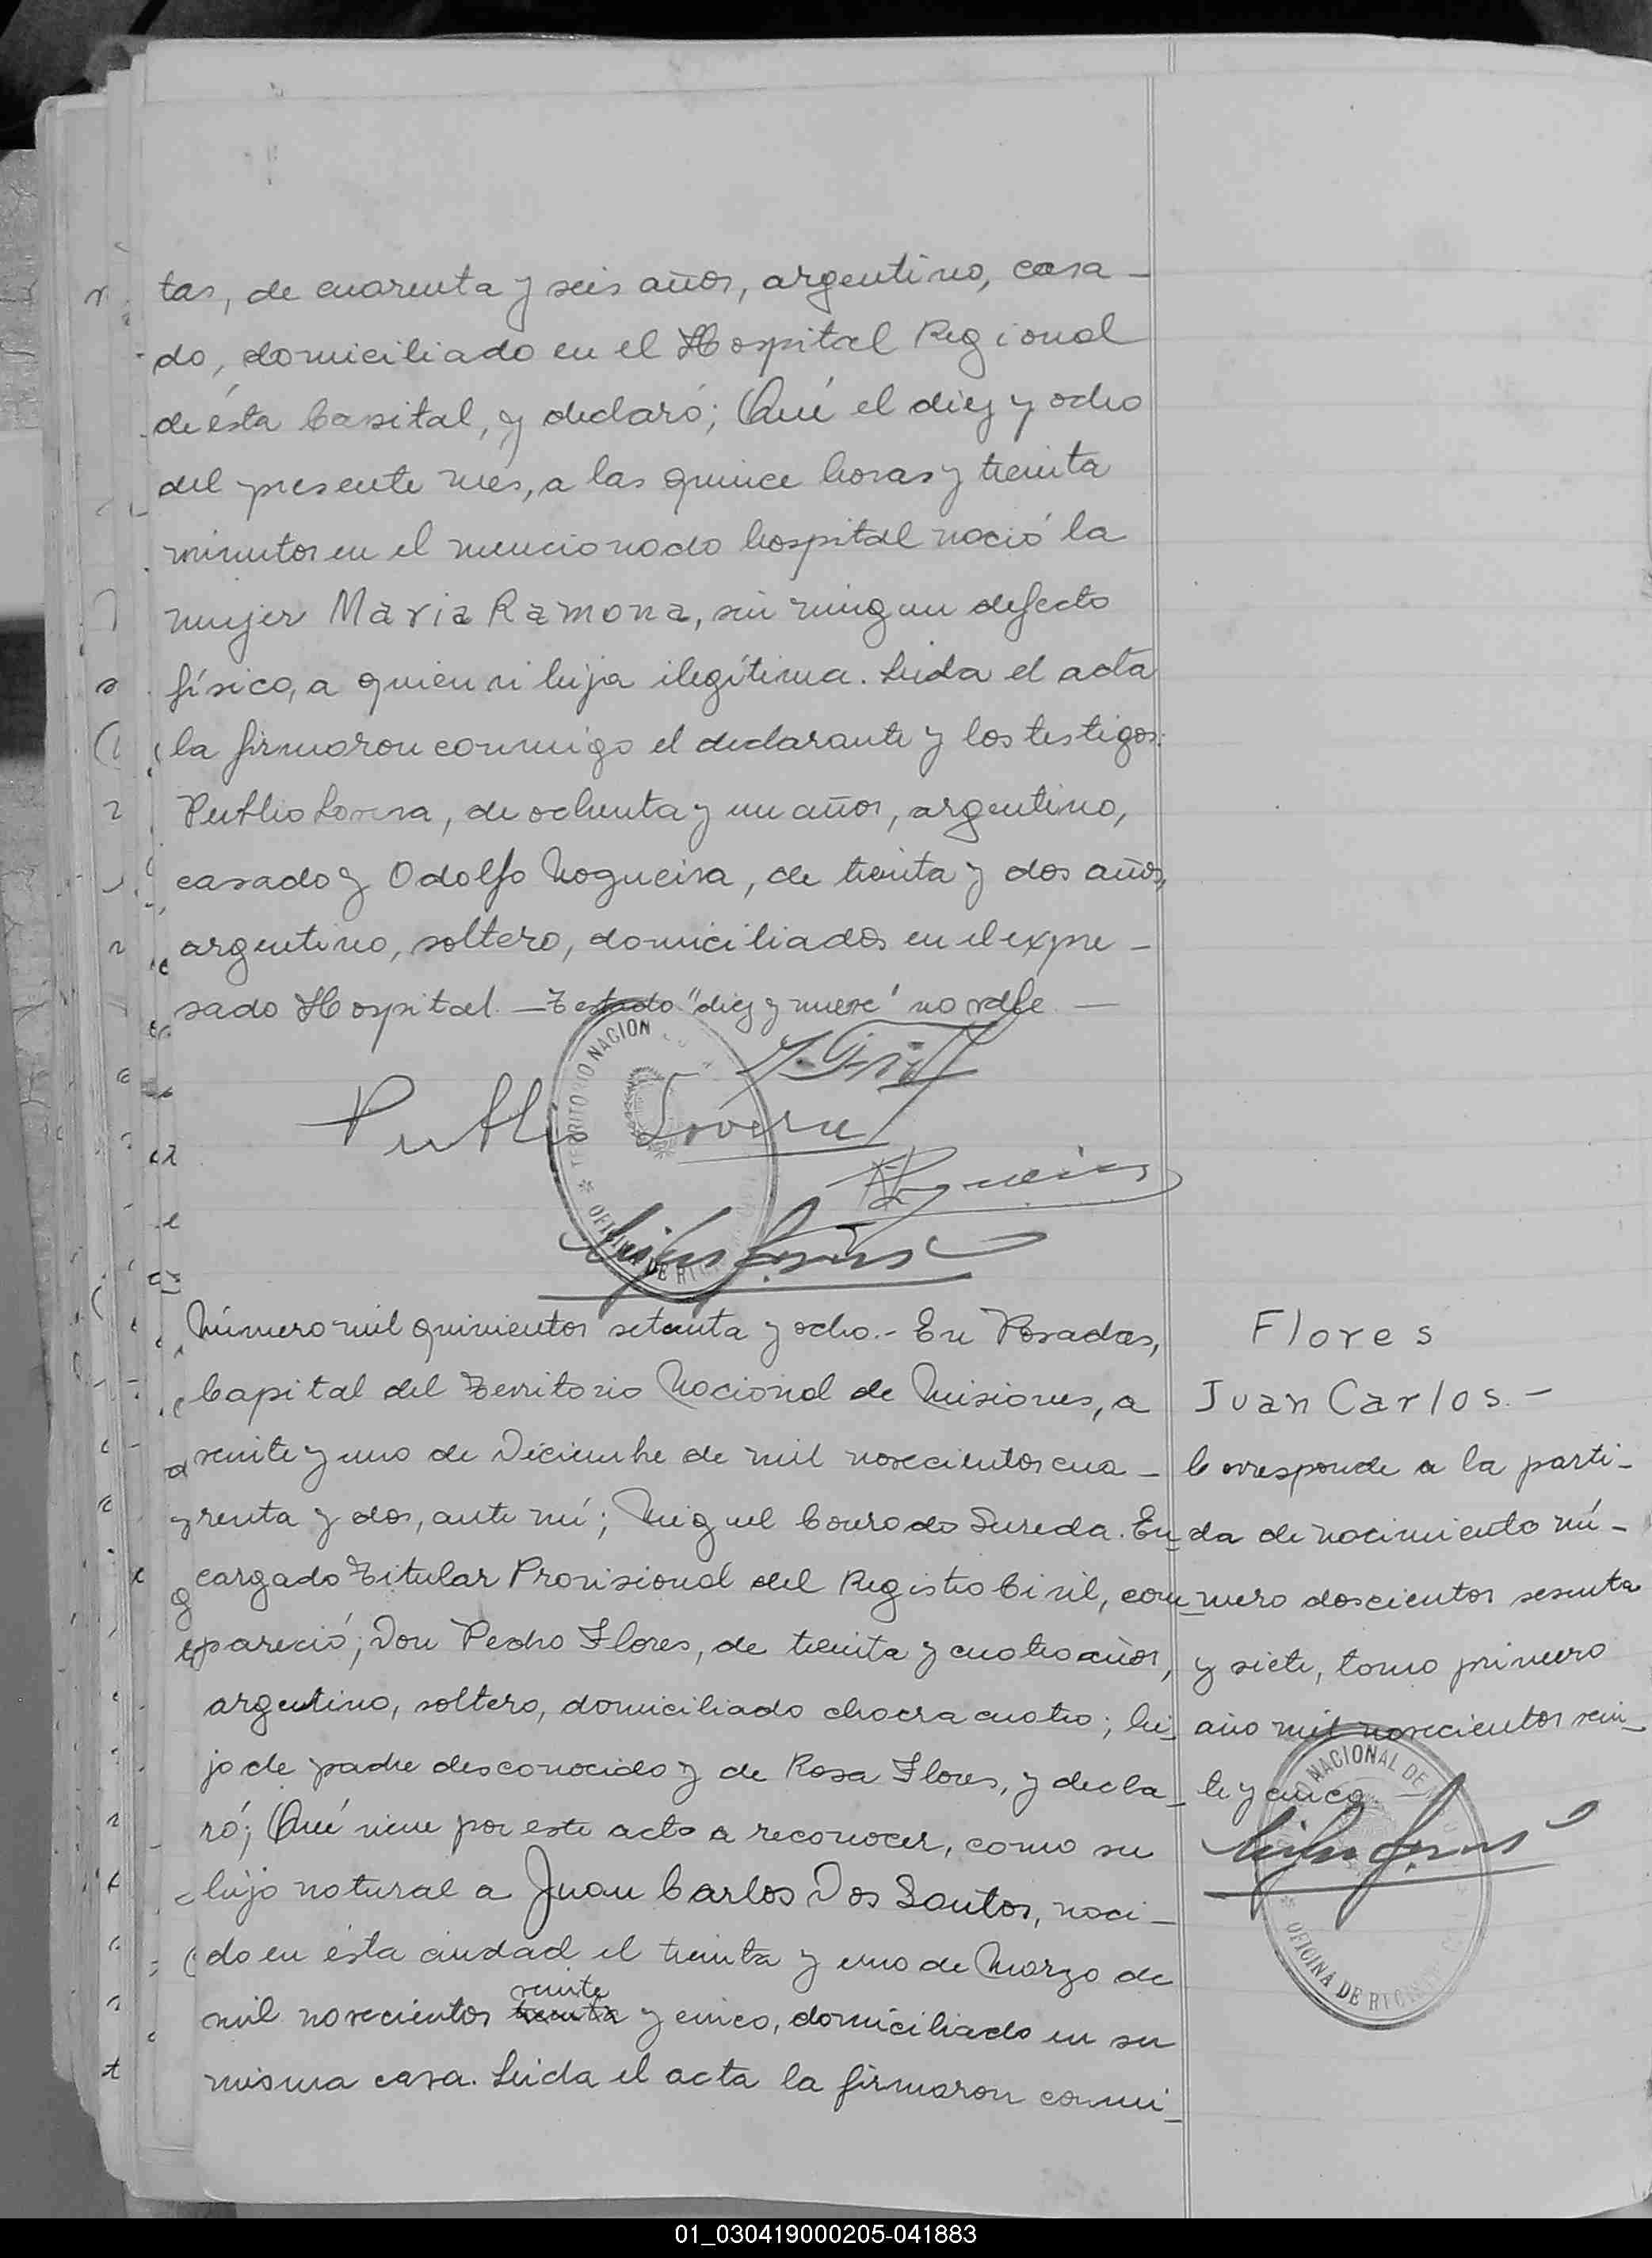 tas, de cuarenta y seis años, argentino, casa-
do, domiciliado en el Hospital Regional
de ésta Capital, y declaró; Qué el diez y ocho
del presente més, a las quince horas y treinta
minutos en el mencionado hospital nació la
mujer Maria Ramona, sin ningun defecto
físico, a quien vi hija ilegítima. Leida el acta
la firmaron conmigo el declarante y los testigos:
Publio Lovera, de ochenta y un años, argentino,
casado y Odolfo Nogueira, de treinta y dos años,
argentino, soltero, domiciliados en el expre-
sado Hospital. — Testado "diez y nueve" no vale —
Publio Lovera
TERRITORIO NACION
OFICINA DE
Número mil quinientos setenta y ocho.- En Posadas,
Capital del Territorio Nacional de Misiones, a
veinte y uno de Diciembre de mil novecientos cua-
renta y dos, ante mí; Miguel Conrado Sureda. En-
cargado Titular Provisional del Registro Civil, com-
pareció; Don Pedro Flores, de treinta y cuatro años,
argentino, soltero, domiciliado chacra cuatro; hi-
jo de padre desconocido y de Rosa Flores, y decla-
ró; Qué viene por este acto a reconocer, como su
hijo natural a Juan Carlos Dos Santos, naci-
do en ésta ciudad el treinta y uno de Marzo de
veinte
mil novecientos treinta y cinco, domiciliado en su
misma casa. Leida el acta la firmaron conmi-
Flores
Juan Carlos.-
Corresponde a la parti-
da de nacimiento nú-
mero doscientos sesenta
y siete, tomo primero
año mil novecientos vein-
te y cinco
NACIONAL DE
OFICINA DE
01_030419000205-041883